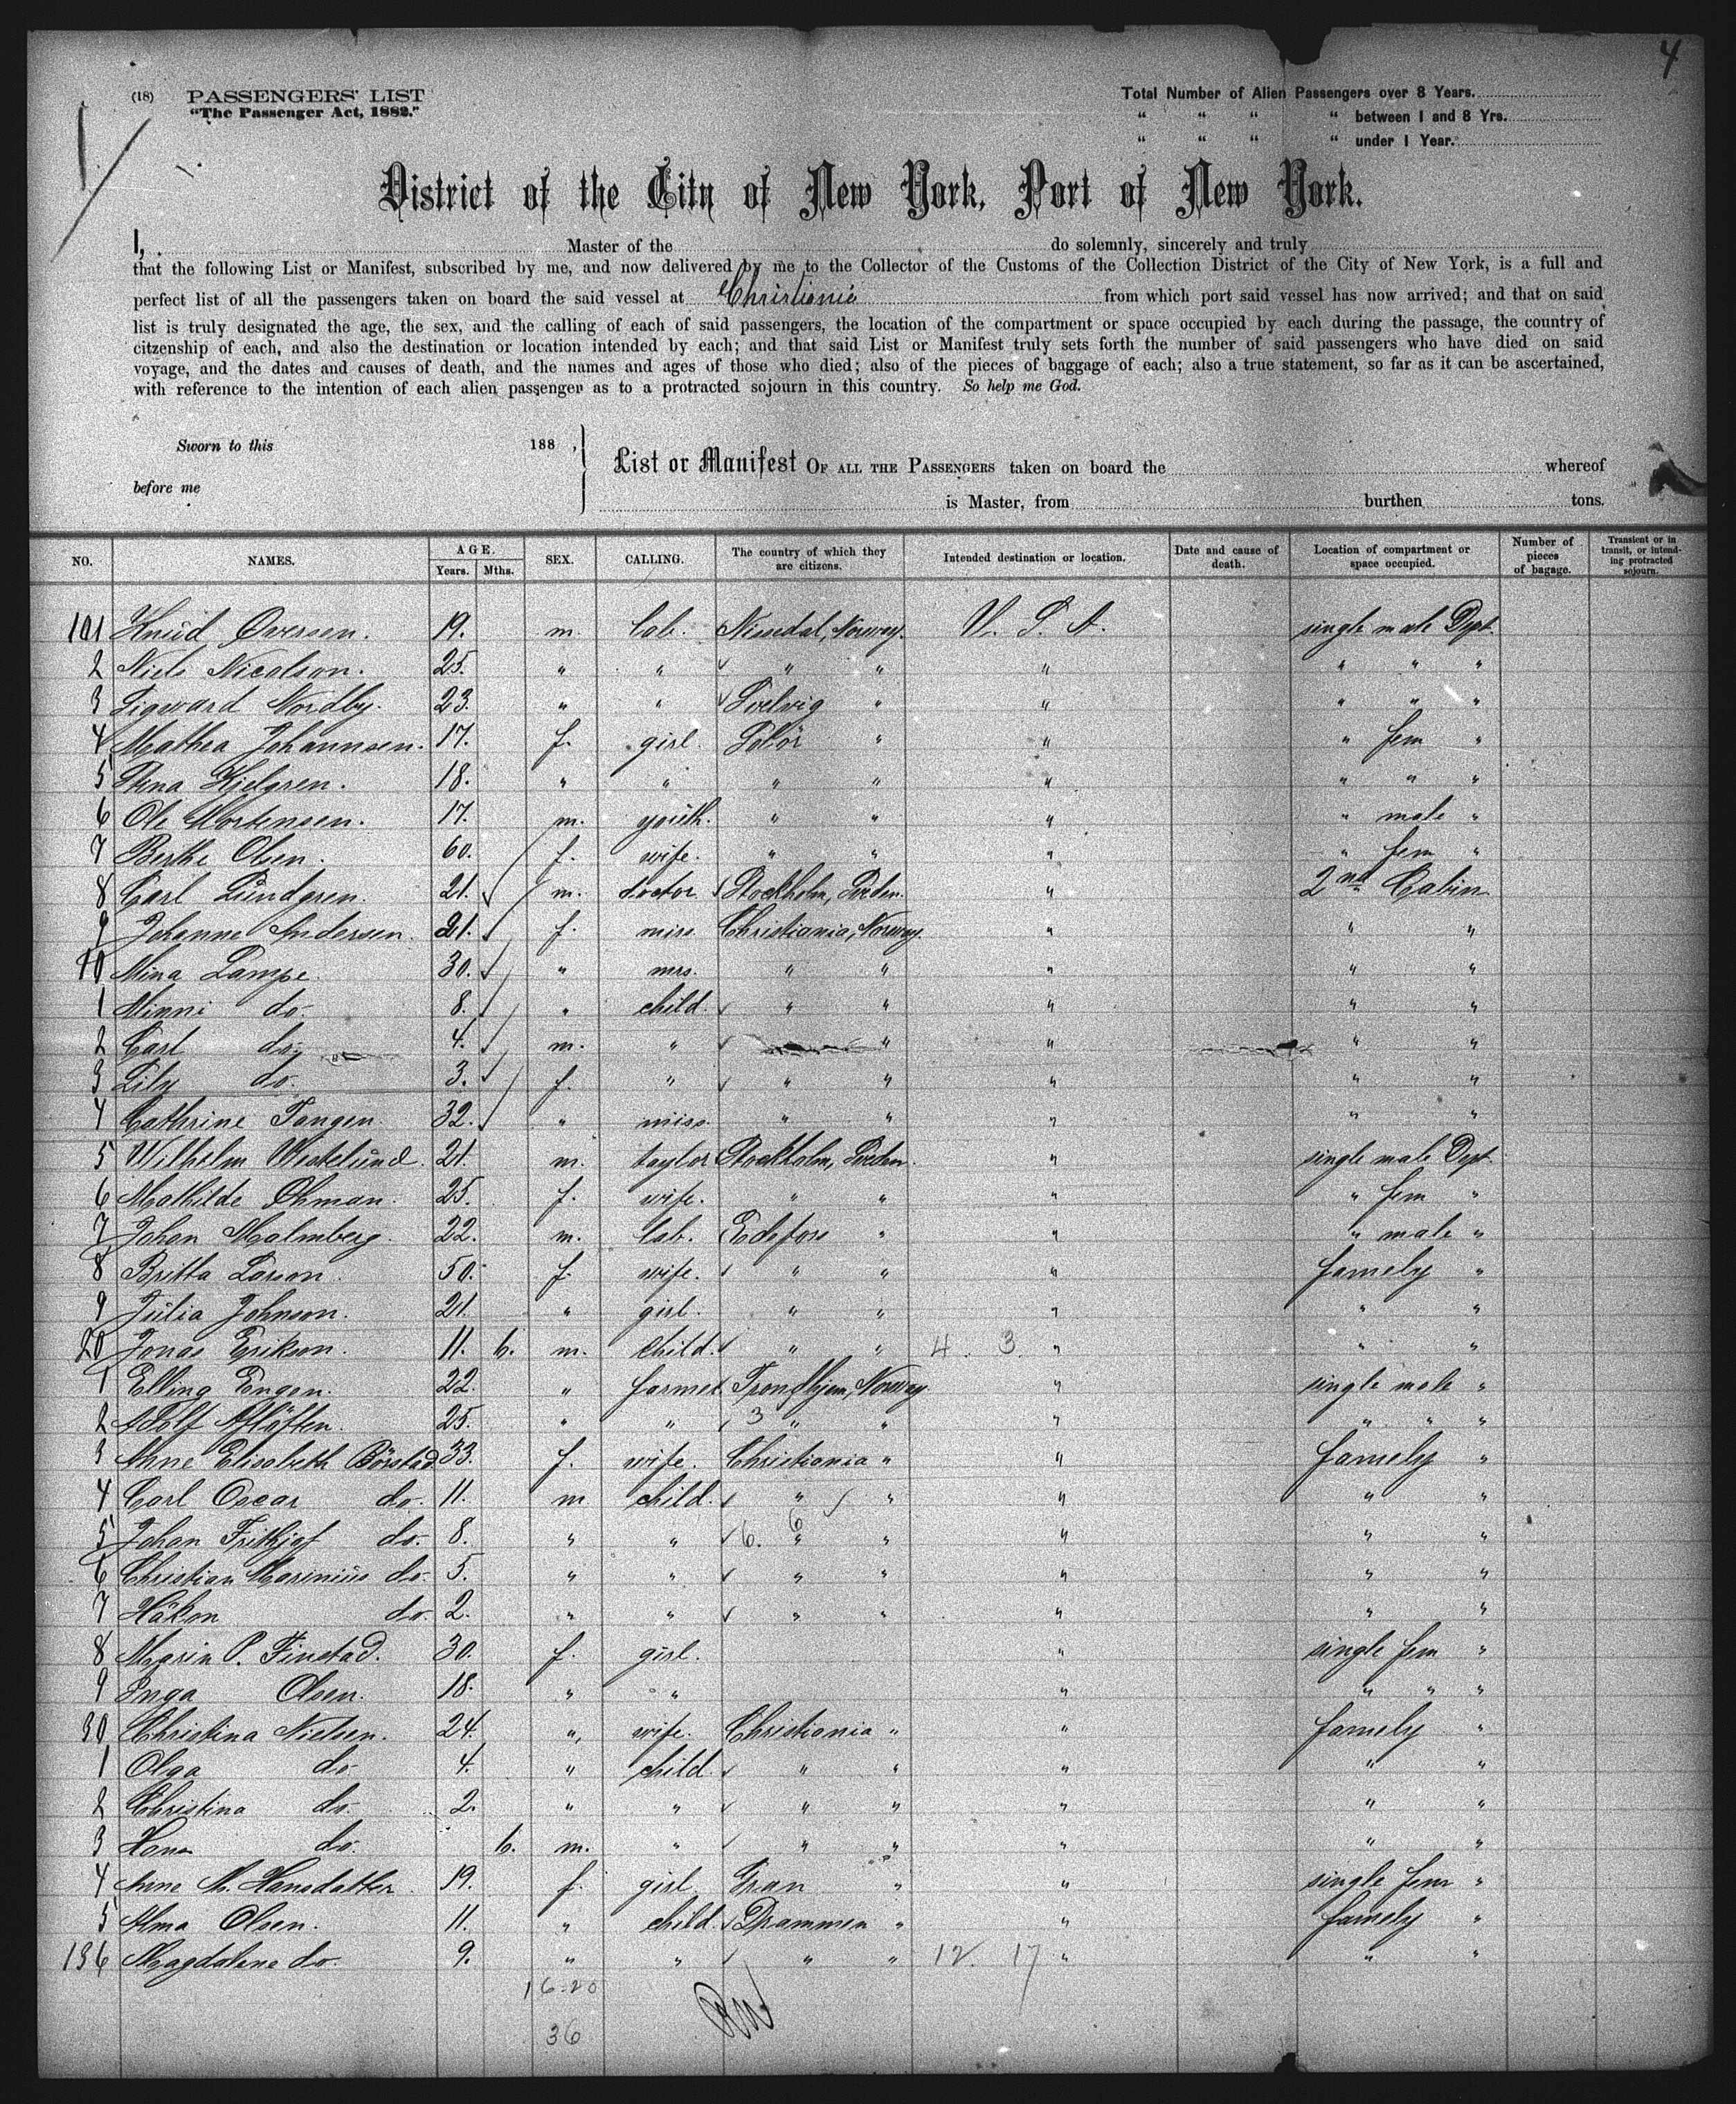 4
(18) PASSENGERS' LIST
"The Passenger Act, 1882."
Total Number of Alien Passengers over 8 Years.
" " " " between 1 and 8 Yrs.
" " " " under 1 Year.
District of the City of New York, Port of New York.
I, Master of the do solemnly, sincerely and truly
that the following List or Manifest, subscribed by me, and now delivered by me to the Collector of the Customs of the Collection District of the City of New York, is a full and
perfect list of all the passengers taken on board the said vessel at Christiania from which port said vessel has now arrived; and that on said
list is truly designated the age, the sex, and the calling of each of said passengers, the location of the compartment or space occupied by each during the passage, the country of
citzenship of each, and also the destination or location intended by each; and that said List or Manifest truly sets forth the number of said passengers who have died on said
voyage, and the dates and causes of death, and the names and ages of those who died; also of the pieces of baggage of each; also a true statement, so far as it can be ascertained,
with reference to the intention of each alien passenger as to a protracted sojourn in this country. So help me God.
Sworn to this 188 ,
before me
List or Manifest OF ALL THE PASSENGERS taken on board the whereof
is Master, from burthen tons.
NO. NAMES. AGE. Years. Mths. SEX. CALLING. The country of which they are citizens. Intended destination or location. Date and cause of death. Location of compartment or space occupied. Number of pieces of bagage. Transient or in transit, or intending protracted sojourn.
101 Knud Oversen. 19. m. lab. Nissedal, Norway. U. S. A. single male Dept.
2 Niels Nicolson. 25. " " " " " " " "
3 Sigward Nordby. 23. " " Svelvig " " " " "
4 Mathea Johannsen. 17. f. girl Solör " " " fem "
5 Stina Kjelgren. 18. " " " " " " " "
6 Ole Mortensen. 17. m. youth. " " " " male "
7 Berthe Olsen. 60. f. wife. " " " " fem "
8 Carl Lundgren. 21. m. doctor Stockholm, Sveden. " 2nd Cabin
9 Johanne Andersen. 21. f. miss Christiania, Norway. " " "
10 Mina Lampe. 30. " mrs. " " " " "
1 Minni do. 8. " child. " " " " "
2 Carl do. 4. m. " " " " "
3 Lily do. 3. f. " " " " " "
4 Cathrine Tangen. 32. " miss. " " " " "
5 Wilhelm Westelund. 21. m. taylor Stockholm, Sveden. " single male Dept.
6 Mathilde Ohman. 25. f. wife. " " " " fem "
7 Johan Malmberg. 22. m. lab. Edefors " " " male "
8 Britta Larson. 50. f. wife. " " " famely "
9 Julia Johnson. 21. " girl. " " " " "
20 Jonas Erikson. 11. 6. m. child. " " 4. 3. " " "
1 Elling Engen. 22. " farmer Trondhjem, Norway. " single male "
2 Adolf 25. " " 3 " " " " " "
3 Anne Elisabeth Börstad 33. f. wife. Christiania " " famely "
4 Carl Oscar do. 11. m child. " " " " "
5 Johan Frithjof do. 8. " " 6. 6 " " " " "
6 Christian Marinius do. 5. " " " " " " "
7 Håkon do. 2. " " " " " " "
8 Marin P. Finstad. 30. f. girl. " single fem "
9 Inga Olsen. 18. " " " " " "
30 Christina Nielsen. 24. " wife. Christiania " " famely "
1 Olga do 4. " child. " " " " "
2 Christina do. 2. " " " " " " "
3 Hans do. 6. m. " " " " " "
4 Anne M. Hansdatter. 19. f. girl. Gran " " single fem "
5 Alma Olsen. 11. " child. Drammen " " famely "
136 Magdalene do. 9. " " " " 12. 17 " " "
16-20
36